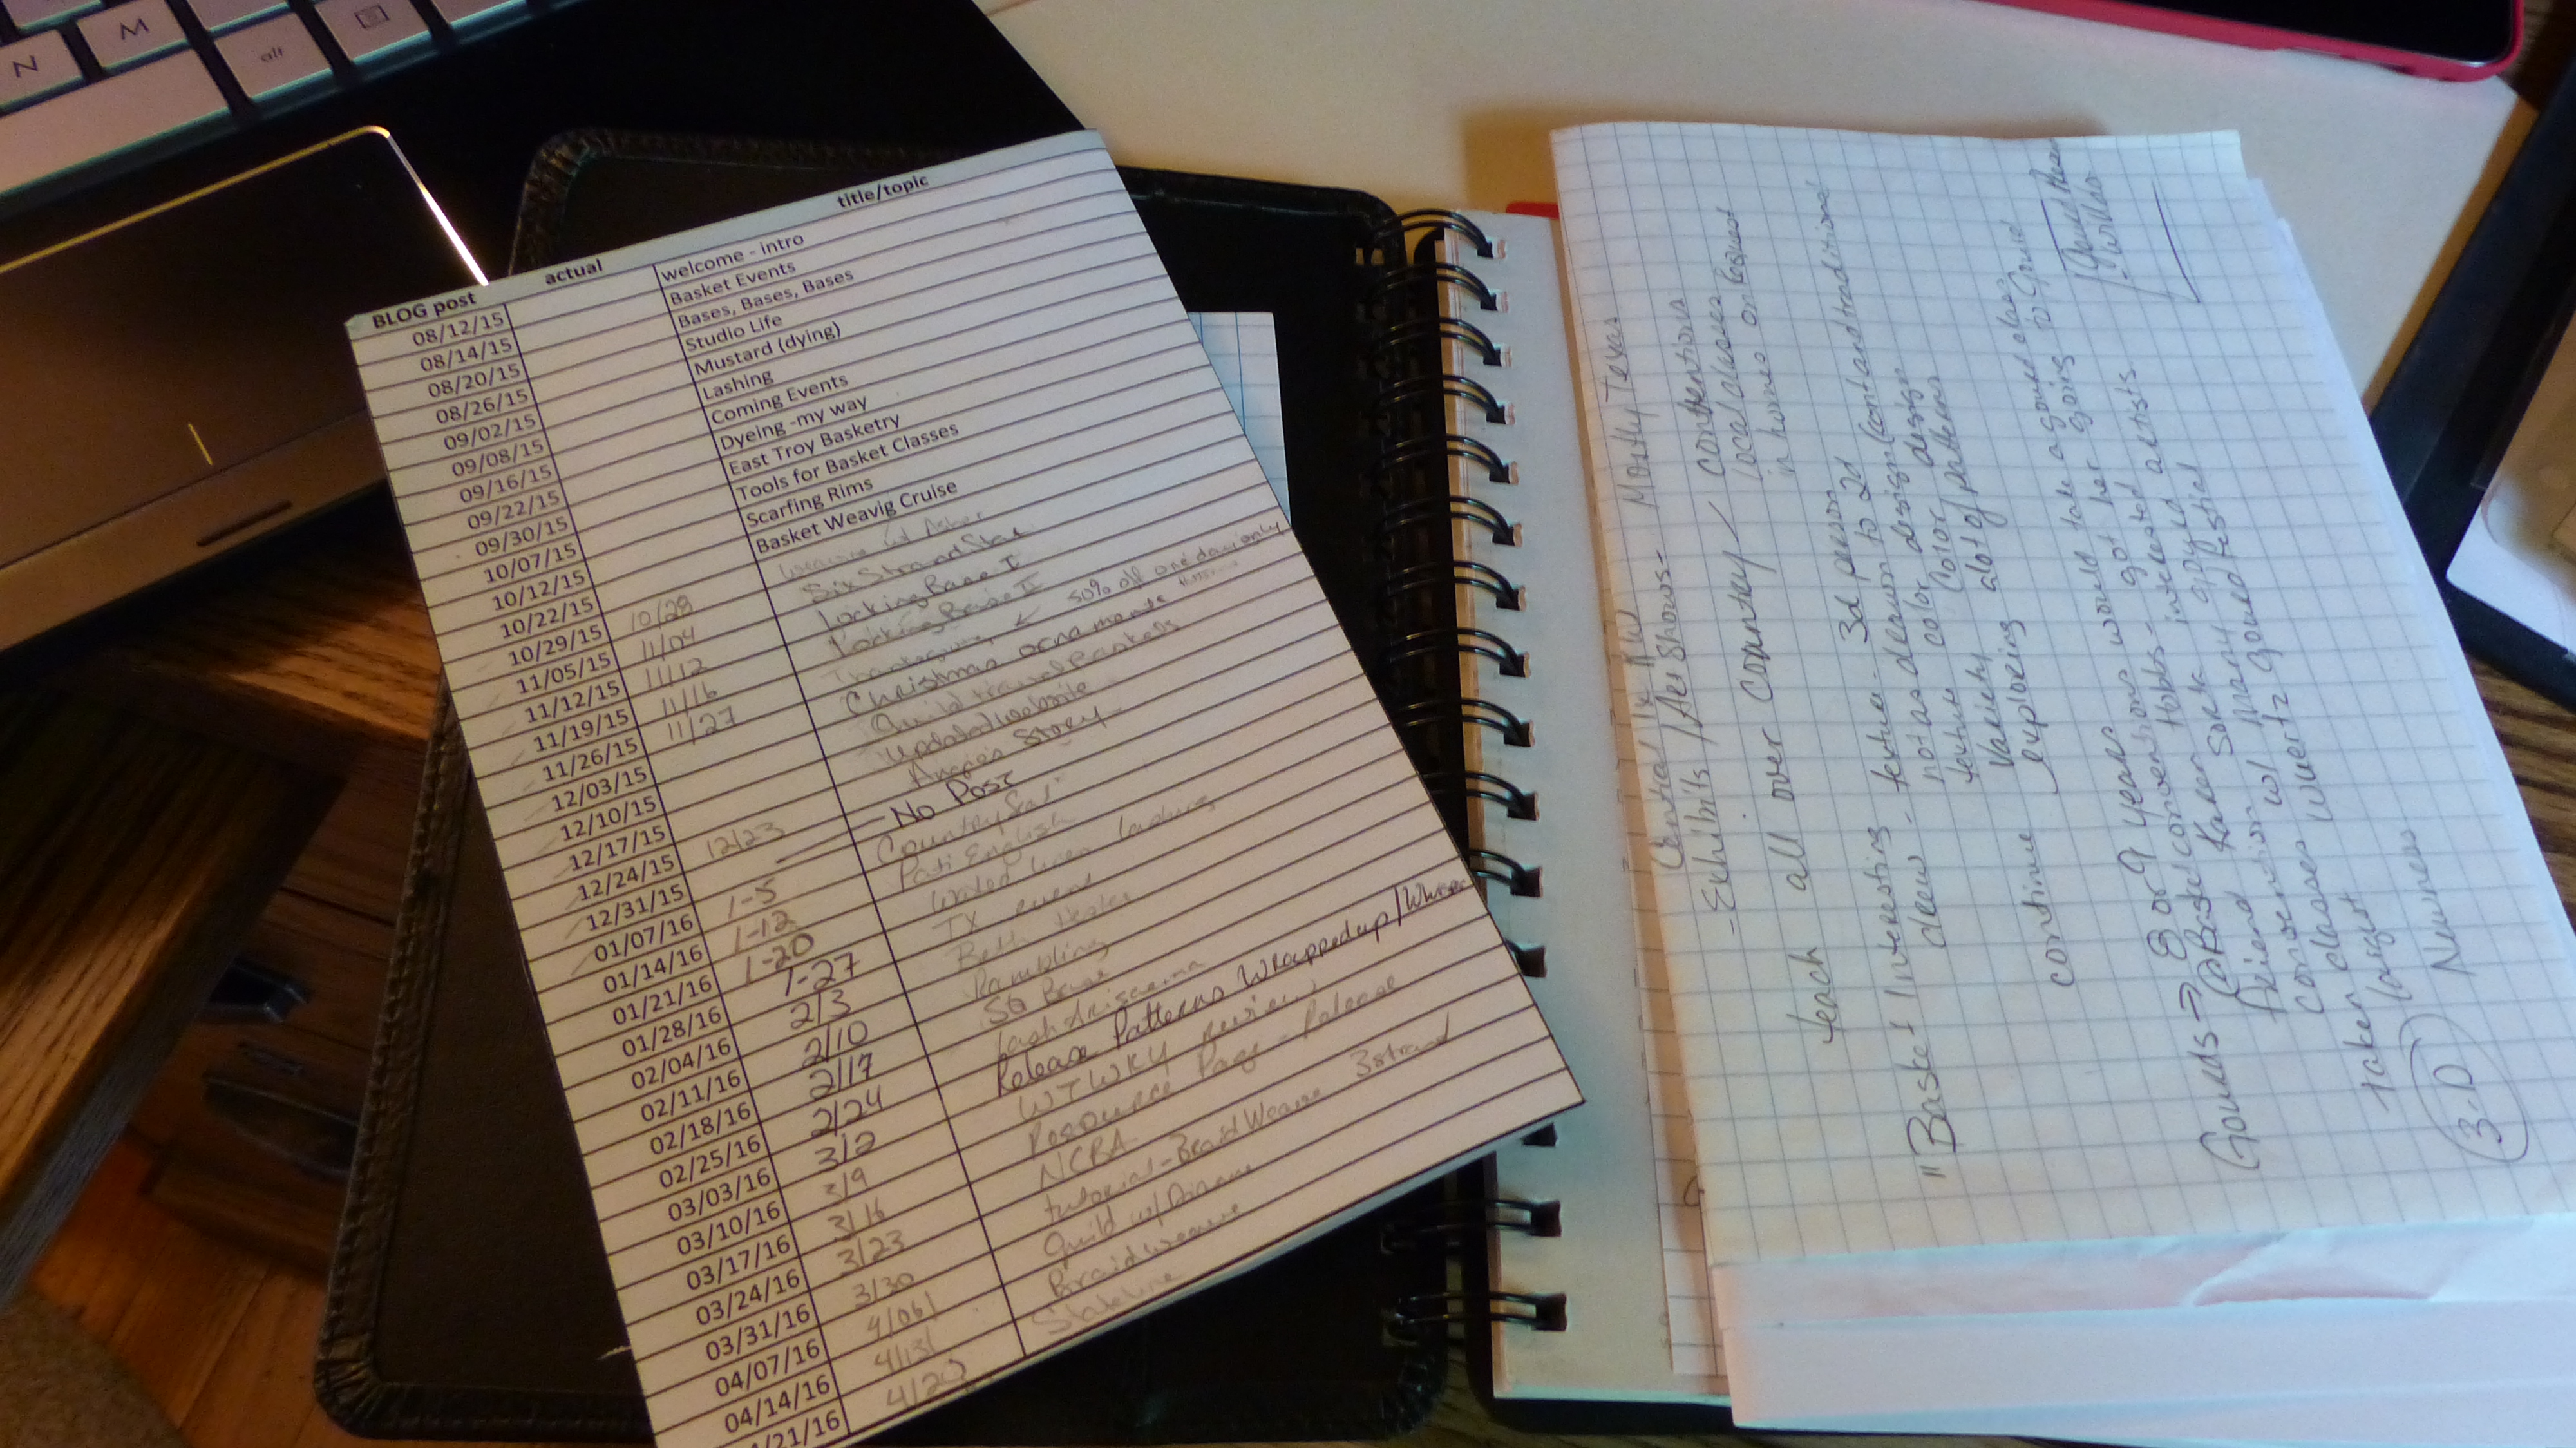 N M
alt
BLOG post actual title/topic
08/12/15 welcome - intro
08/14/15 Basket Events
08/20/15 Bases, Bases, Bases
08/26/15 Studio Life
09/02/15 Mustard (dying)
09/08/15 Lashing
09/16/15 Coming Events
09/22/15 Dyeing -my way
09/30/15 East Troy Basketry
10/07/15 Tools for Basket Classes
10/12/15 Scarfing Rims
10/22/15 Basket Weavig Cruise
10/29/15 10/28
11/05/15 11/04 Six Strand Star
11/12/15 11/12 Locking Base I
11/19/15 11/16 Locking Base II
11/26/15 11/27 Thanksgiving 50% off one day only
12/03/15 Christmas ornaments
12/10/15 Guild travel baskets
12/17/15 updated website
12/24/15 12/23 Story
12/31/15 - No Post
01/07/16 1-5 Country Seat
01/14/16 1-12 Pati English
01/21/16 1-20 waxed linen lashing
01/28/16 1-27 TX event
02/04/16 2/3 Beth
02/11/16 2/10 Rambling
02/18/16 2/17 Base
02/25/16 2/24 lash
03/03/16 3/2 Release Patterns Wrapped up/
03/10/16 3/9 WTWKY review
03/17/16 3/16 Resource Page - Release
03/24/16 3/23 NCBA
03/31/16 3/30 tutorial - Braid Weave 3 strand
04/07/16 4/06 Guild w/
04/14/16 4/13 Braid weave
/21/16 4/20 Stateline
Mostly Texas
Central
- Exhibits / Art Shows - conventions
local classes
in homes or
teach all over country
"Basket Interesting - texture - 3d person
drew - not as drawn to 2d (cont and traditional
texture color design
variety color of patterns
continue exploring alot of
Gourds → 8 or 9 years would take a gourd class
@ Basket conventions got her going to Gourd
Karen Hobbs - interested artists
friend Karen Sork enjoyed
convention w/ many gourd festival
classes Wuertz gourd
taken
3-D Newness